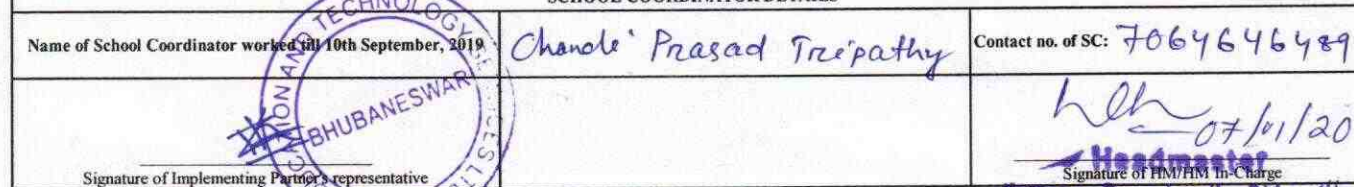 SCHOOL COORDINATOR DETAILS
Name of School Coordinator worked till 10th September, 2019
Chandi Prasad Tripathy
Contact no. of SC: 7064646489
TECHNOLOGY
BHUBANESWAR
07/01/20
Headmaster
Signature of Implementing Partner's representative
Signature of HM/HM In-Charge